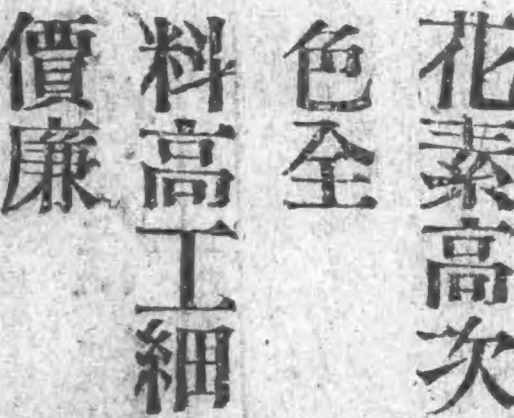 花素高次
色全
料高工細
價廉